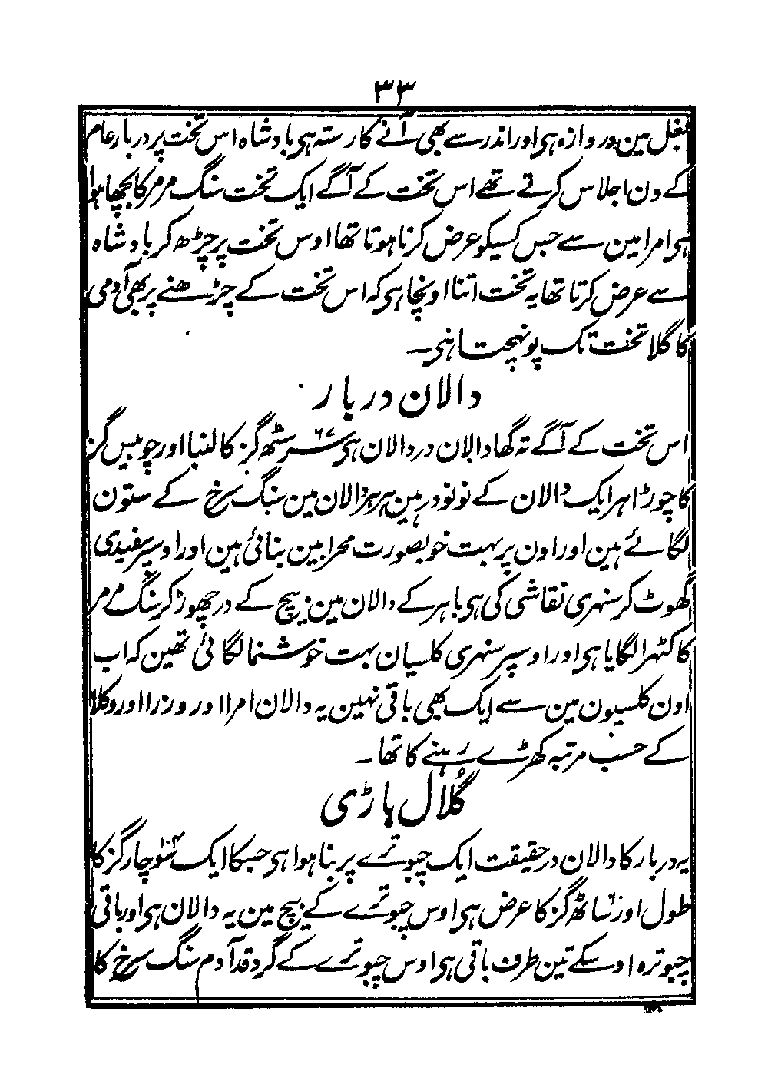 ۳۳
بغل مین دروازہ ہی اور اندر سے بھی آنے کا رستہ ہی بادشاہ اس تخت پر دربار عام
کے دن اجلاس کرتے تھے اس تخت کے آگے ایک تخت سنگ مرمر کا بچھا ہوا
ہی امرا مین سے جس کسیکو عرض کرنا ہوتا تھا اوس تخت پر چڑھ کر بادشاہ
سے عرض کرتا تھا یہ تخت اتنا اونچا ہی کہ اس تخت کے چڑھنے پر بھی آدمی
کا گلا تخت تک پونہچتا ہی۔
دالان دربار
اس تخت کے آگے تہ گھا دالان در دالان ہی ۶۷ سرسٹھ گز کا لنبا اور چوبیس گز
کا چوڑا ہر ایک دالان کے نو نو در ہین ہر ہر دالان مین سنگ سرخ کے ستون
لگائے ہین اور اون پر بہت خوبصورت محرابین بنائی ہین اور اوسپر سفیدی
گھوٹ کر سنہری نقاشی کی ہی باہر کے دالان مین بیچ کے در چھوڑ کر سنگ مرمر
کا کٹہرا لگایا ہی اور اوسپر سنہری کلسیان بہت خوشنما لگائی تھین کہ اب
اون کلسیون مین سے ایک بھی باقی نہین یہ دالان امرا اور وزرا اور وکلا
کے حسب مرتبہ کھڑے رہنے کا تھا۔
گلال باڑی
یہ دربار کا دالان در حقیقت ایک چبوترے پر بنا ہوا ہی جسکا ایک سو چار گز کا
طول اور ساٹھ گز کا عرض ہی اوس چبوترے کے بیچ مین یہ دالان ہی اور باقی
چبوترہ اوسکے تین طرف باقی ہی اوس چبوترے کے گرد قد آدم سنگ سرخ کا